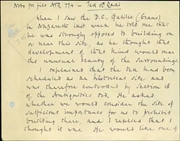 When I saw the D.C. Galilee (Evans)
in Nazareth last week he told me that
he was strongly opposed to building on
or near this site, as he thought that
development of this kind would mar
the unusual beauty of the surroundings.
I explained that the Tell had been
scheduled as an historical site, and
was therefore controlled by Section
of the Antiquities Ord. He asked
whether we would consider the site of
sufficient importance for us to prohibit
building there, and I replied that I
thought it was. He would like one of